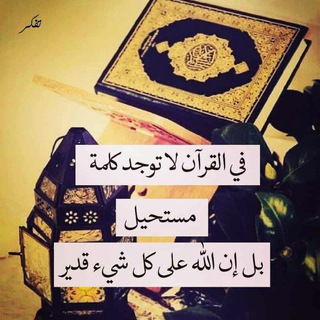 تفكر
في القرآن لا توجد كلمة
مستحيل
بل إن الله على كل شيء قدير